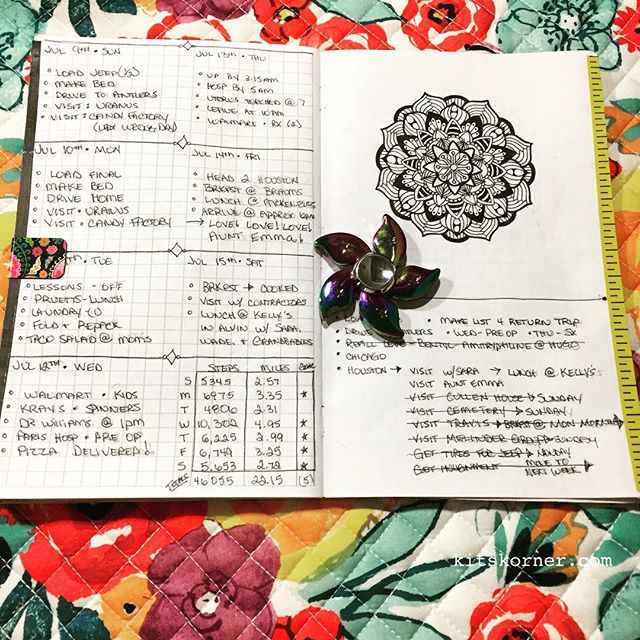 JUL 9TH • SUN
• LOAD JEEP (1/2)
• MAKE BED
• DRIVE TO ANTLERS
• VISIT: URANUS
• VISIT: CANDY FACTORY
(WAS WRONG DAY)
JUL 10TH • MON
• LOAD FINAL
• MAKE BED
• DRIVE HOME
• VISIT: URANUS
• VISIT: CANDY FACTORY
TUE
LESSONS - OFF
PRUETTS - LUNCH
LAUNDRY
• FOLD & REPACK
• TACO SALAD @ MOM'S
JUL 12TH • WED
• WALMART • KIDS
• KRAYS • SPINNERS
• DR WILLIAMS @ 1PM
• PARIS HOSP • PRE OP
• PIZZA DELIVERED!
JUL 13TH • THU
• UP BY 3:15AM
• HOSP BY 5AM
• UTERUS TORCHED @ 7
• LEAVE AT 10AM
• WALMART - RX (2)
JUL 14TH • FRI
• HEAD 2 HOUSTON
• BRKFST @ BRAUMS
• LUNCH @ MCKENZIES
• ARRIVE @ APPROX 6PM
→ LOVE! LOVE! LOVE!
AUNT EMMA!
JUL 15TH • SAT
• BRKFST → COOKED
• VISIT W/ CONTRACTORS
• LUNCH @ KELLY'S
IN ALVIN W/ SARA,
WADE, & GRANDBABIES
STEPS MILES
S 5345 2.57
M 6975 3.35 *
T 4806 2.31
W 10,302 4.95 *
T 6,225 2.99 *
F 6,749 3.25 *
S 5,653 2.72 *
TOTAL 46055 22.15 (5)
• MAKE LIST 4 RETURN TRIP
• WED - PRE OP • THU - SX
• REFILL
• CHICAGO
• HOUSTON → VISIT W/SARA → LUNCH @ KELLY'S
VISIT AUNT EMMA
VISIT CULLEN HOUSE → SUNDAY
VISIT CEMETERY → SUNDAY
VISIT TRAVIS → BRKFST @ MON MORN
VISIT SUNDAY
GET TIRES FOR JEEP → MONDAY
GET ALIGNMENT MOVE TO
NEXT WEEK
kitskorner.com